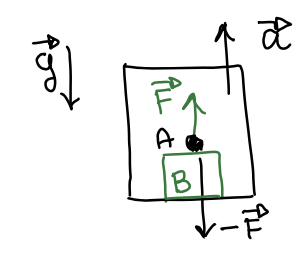 g⃗
a⃗
F⃗
A
B
-F⃗